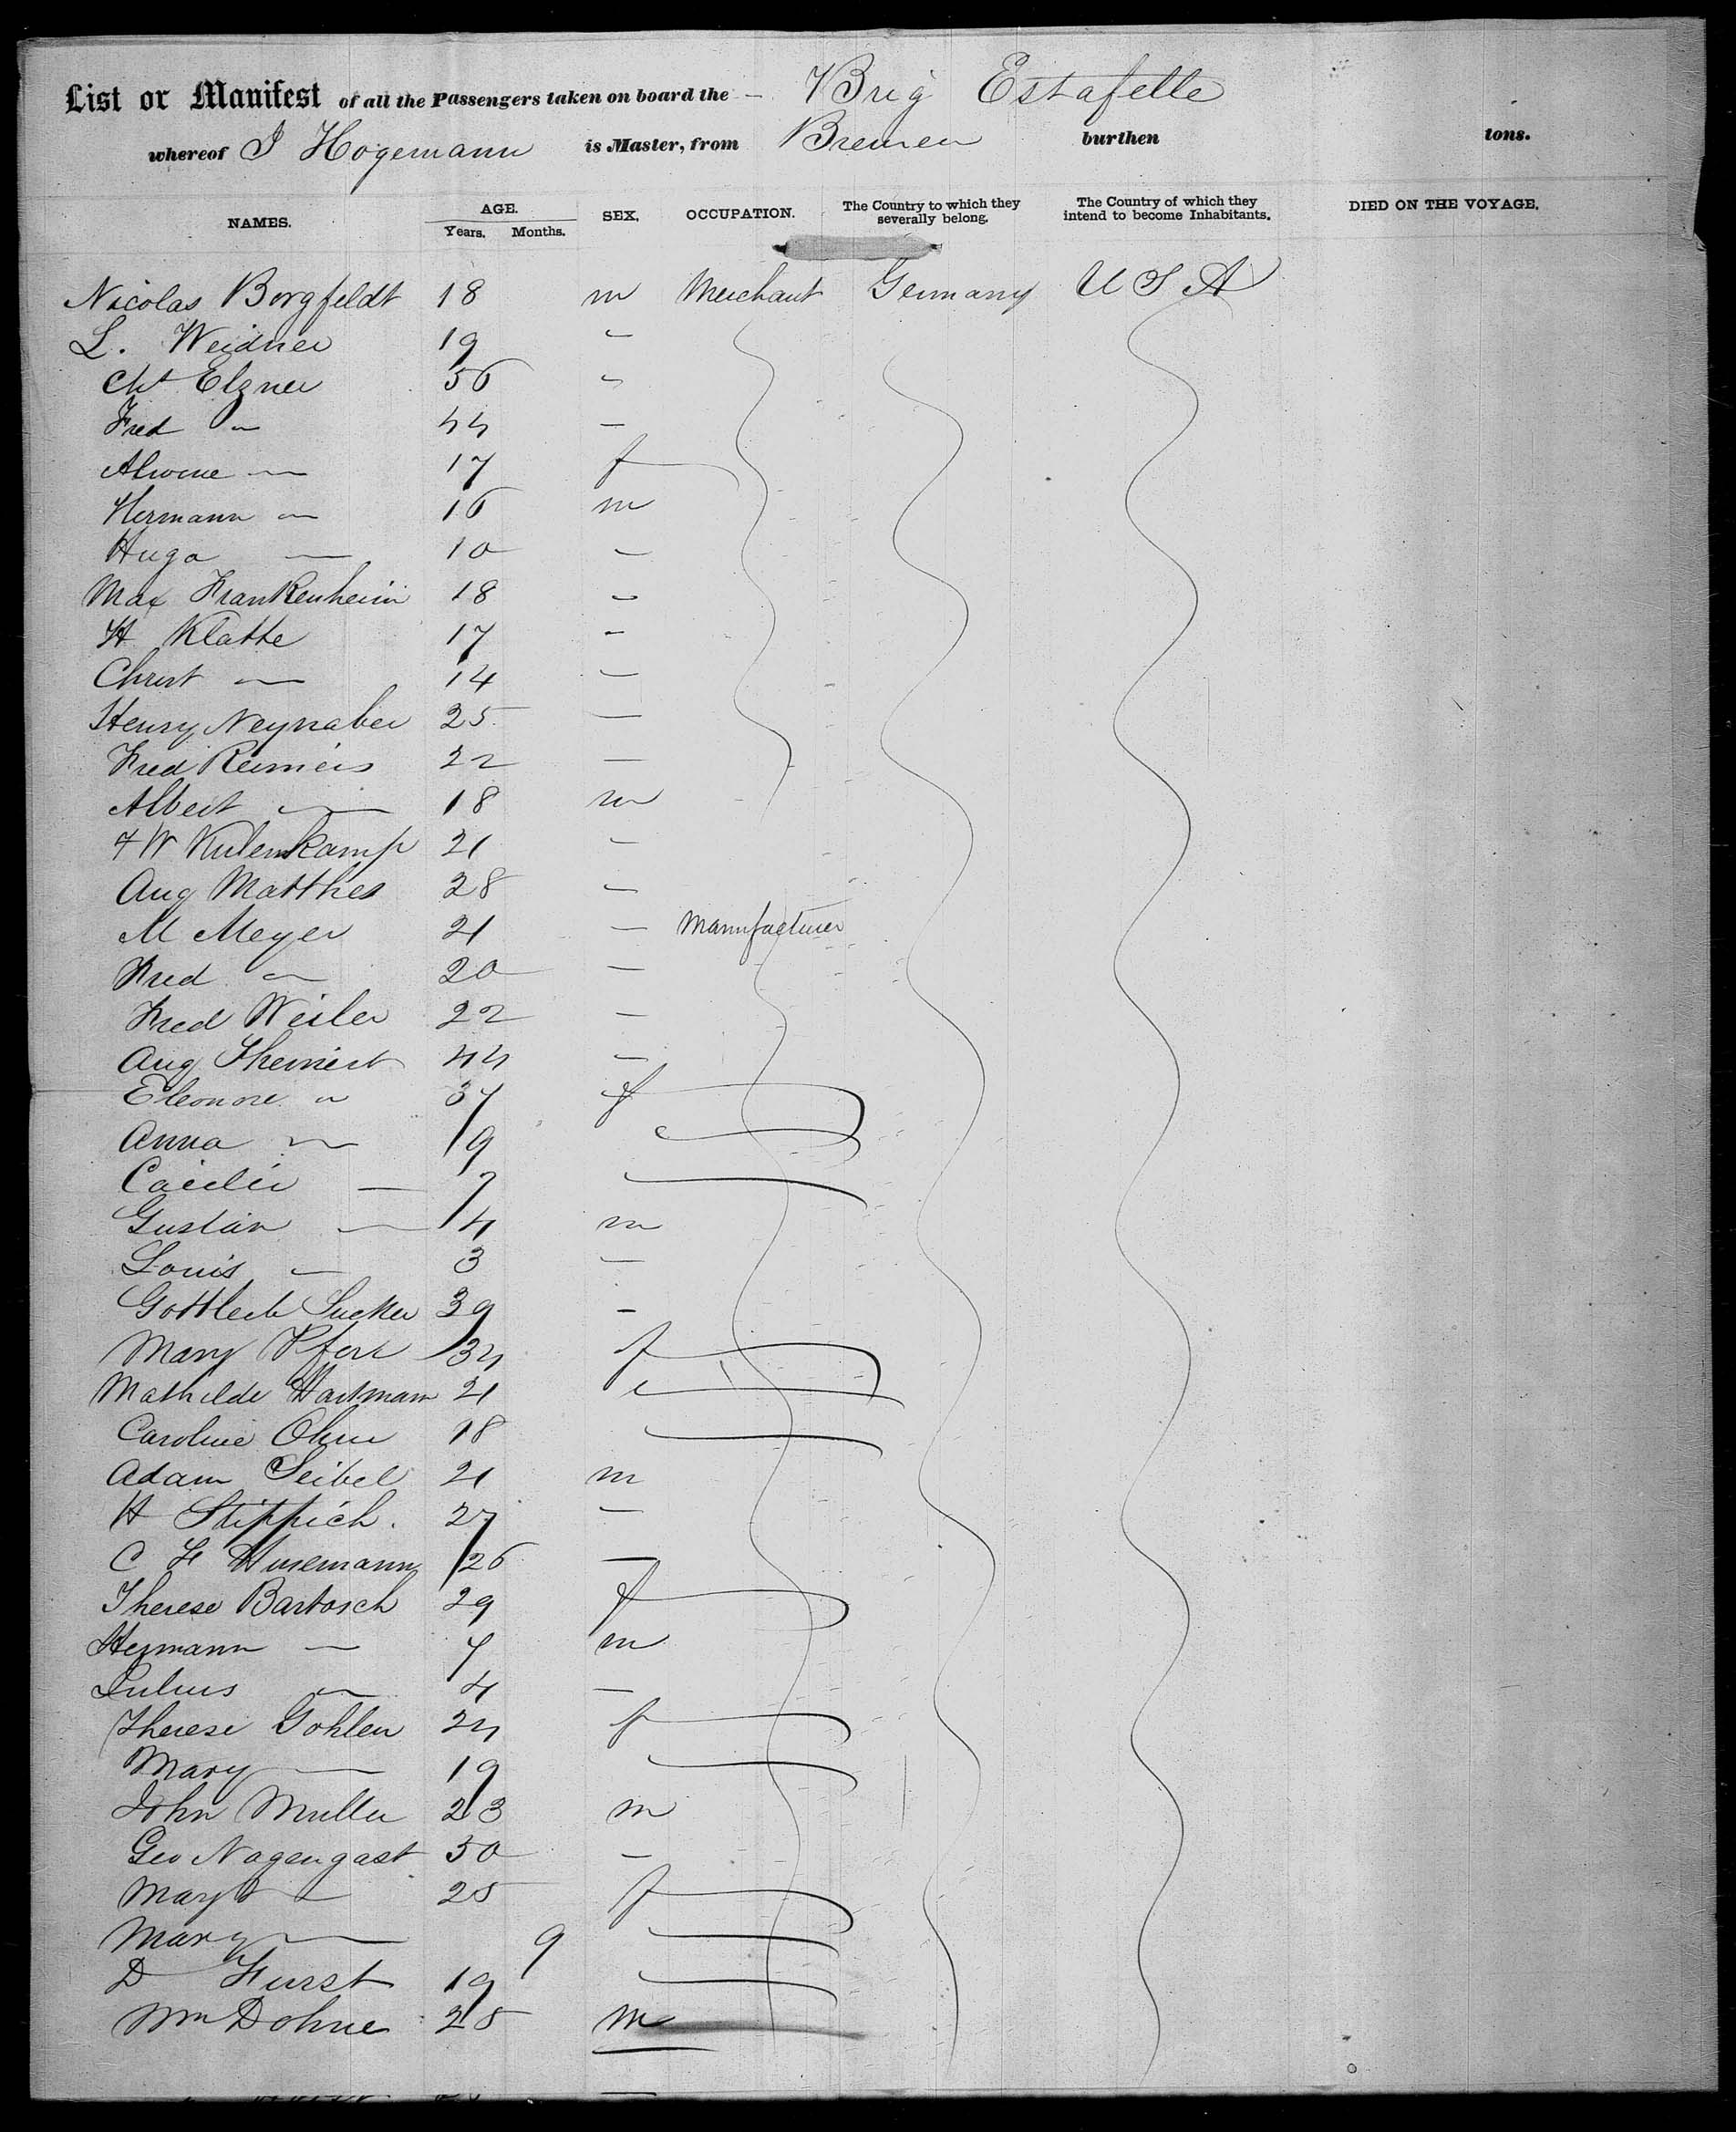 List or Manifest of all the Passengers taken on board the - Brig Estafelle
whereof J Hogemann is Master, from Bremen burthen tons.
NAMES. AGE. Years. Months. SEX. OCCUPATION. The Country to which they severally belong. The Country of which they intend to become Inhabitants. DIED ON THE VOYAGE.
Nicolas Borgfeldt 18 m Merchant Germany U S A
L. Weidner 19 "
Cht Elzner 56 "
Fred " 44 —
Alwine — 17 f
Hermann " 16 m
Hugo — 10 —
Max Frankenheim 18 "
H Klatte 17 "
Christ — 14 —
Henry Neynaber 25 —
Fred Reiners 22 —
Albert — 18 m
F W Kulenkamp 21 —
Aug Matthes 28 —
M Meyer 21 — Manufacturer
Fred " 20 —
Fred Weiler 22 —
Aug Theinert 44 —
Eleonore " 37 f
Anna " 19
Cacilie — 7
Gustav — 4 m
Louis — 3 —
Gottlieb Sucker 39 —
Mary Pforr 34 f
Mathilde Hartmann 21
Caroline Ohm 18
Adam Seibel 21 m
H Stippich. 27 —
C F Husemann 26 —
Therese Bartosch 29 f
Hermann — 7 m
Julius " 4 —
Therese Gohlen 24 f
Mary — 19
John Muller 23 m
Geo Nagengast 30 —
Mary — 25 f
Mary — 9
D Furst 19
Wm Dohne 25 m